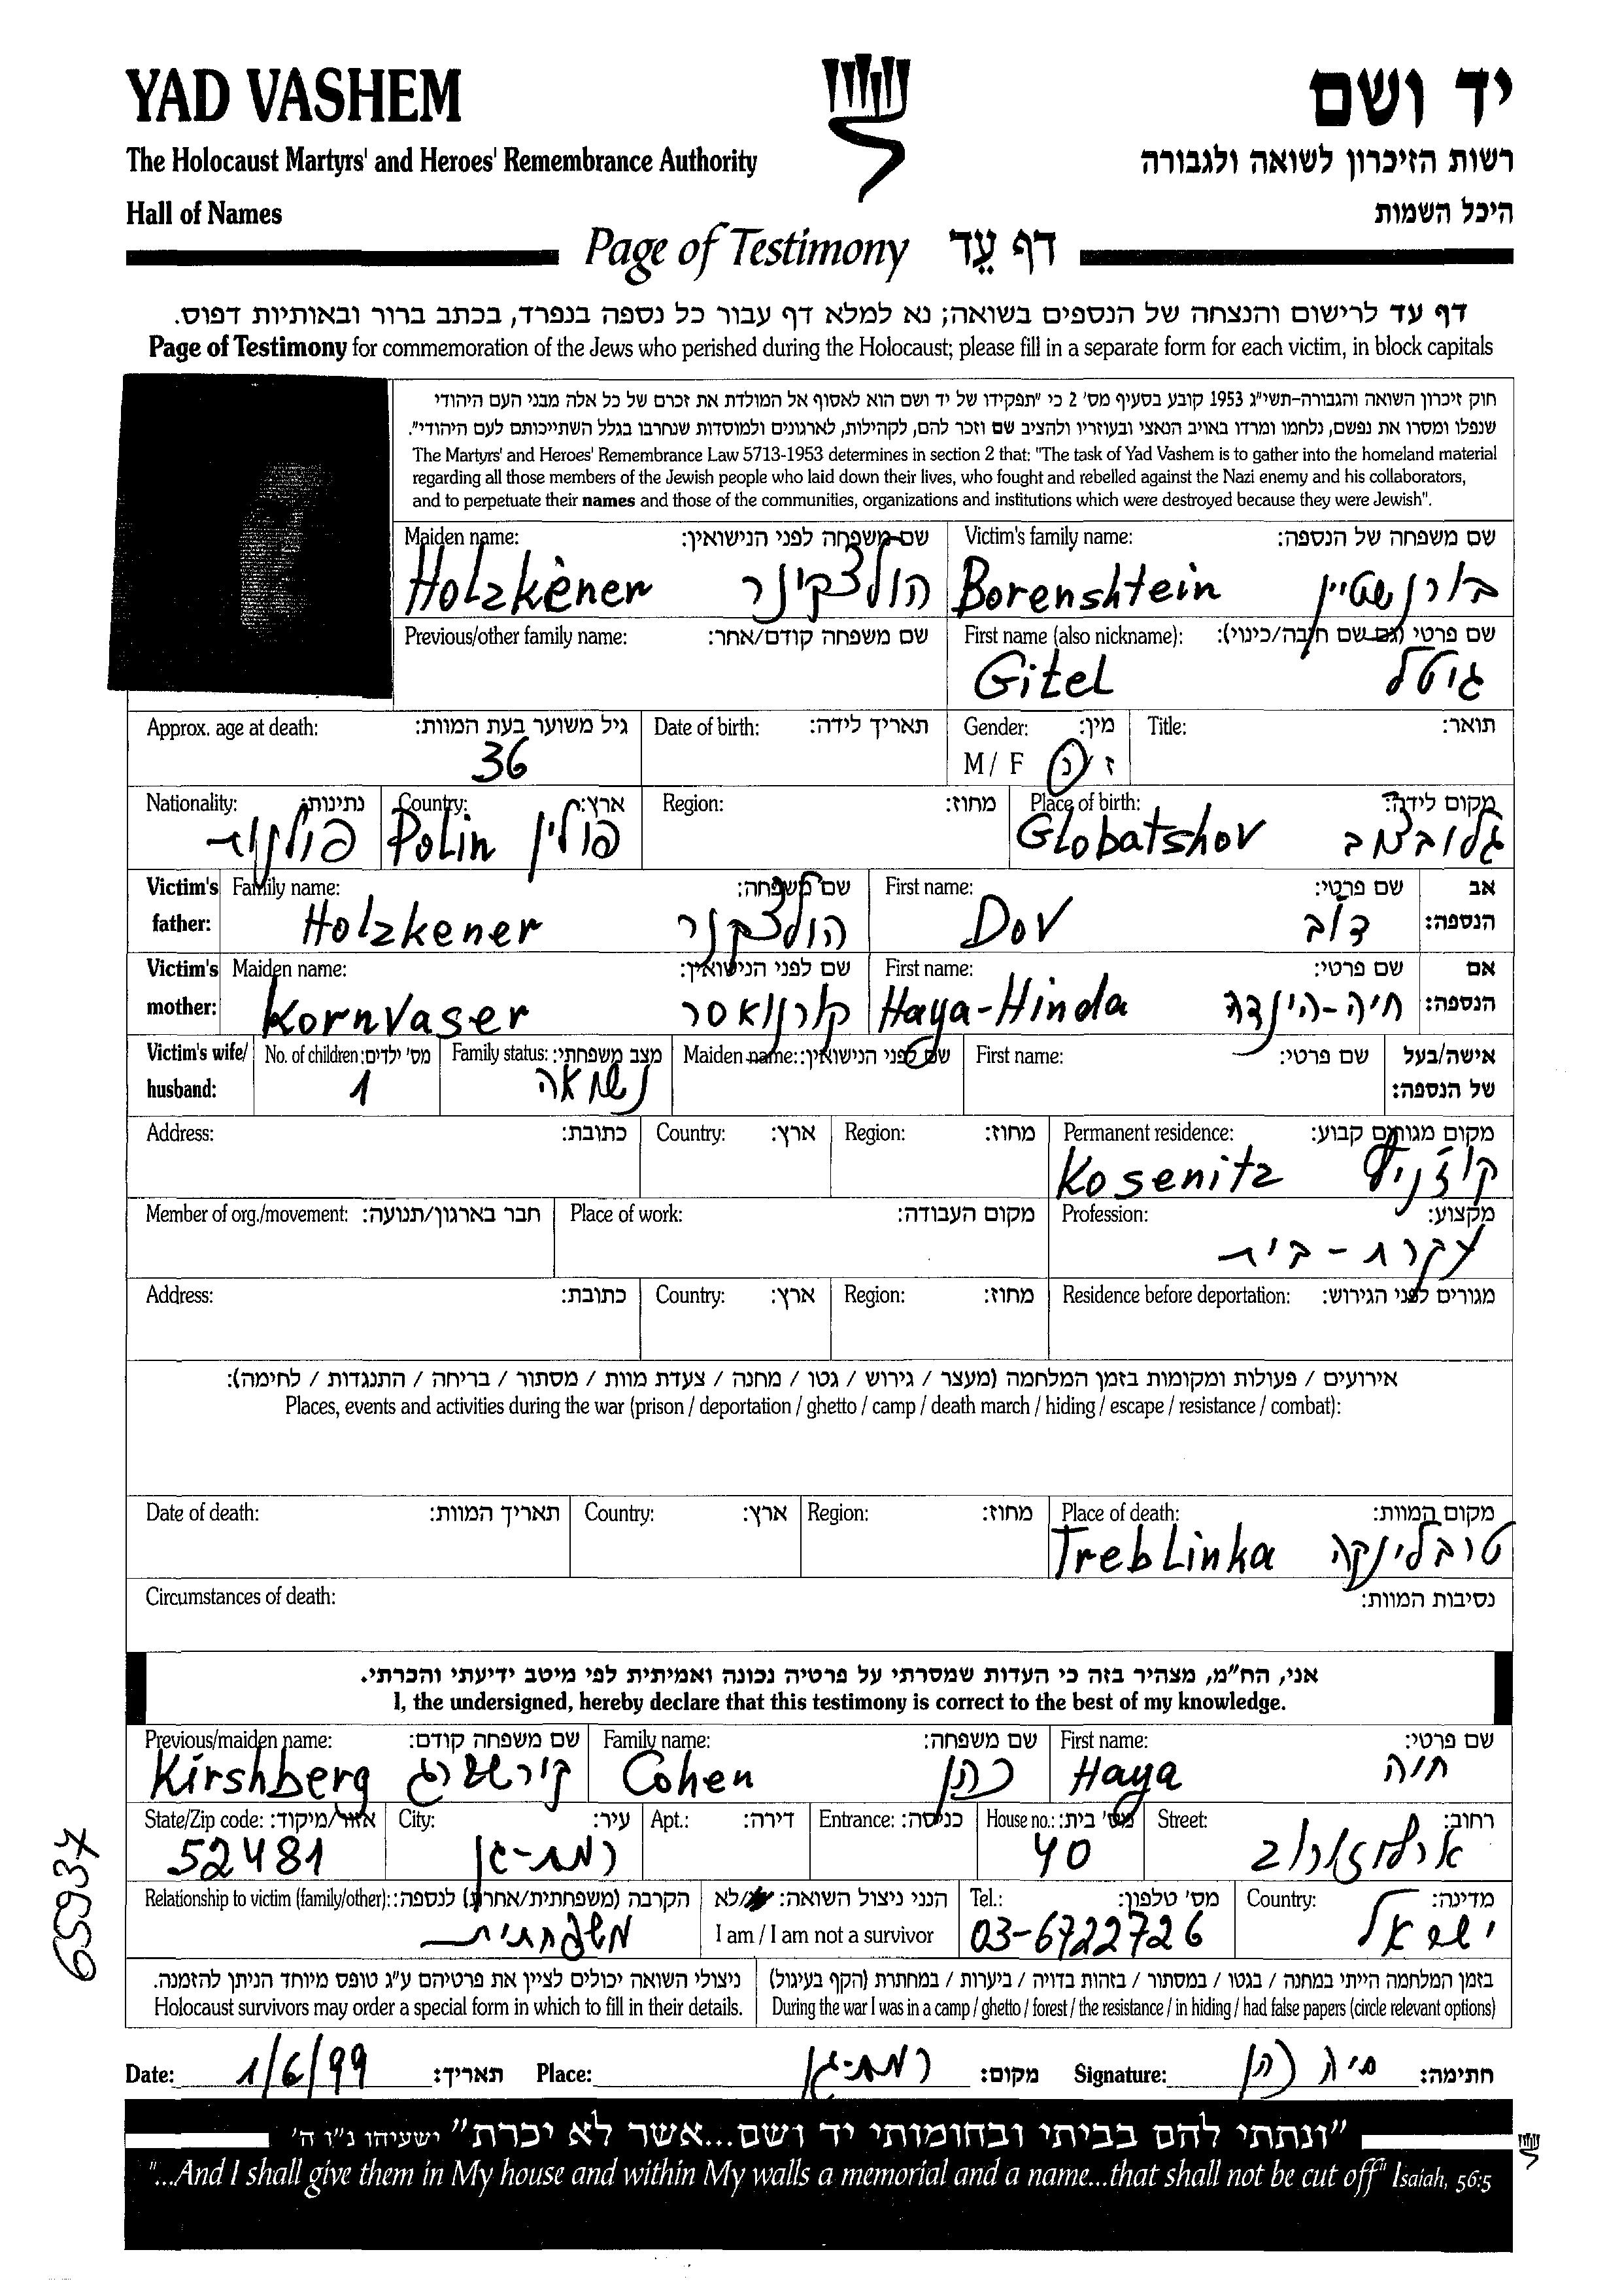 YAD VASHEM
יד ושם
The Holocaust Martyrs' and Heroes' Remembrance Authority
רשות הזיכרון לשואה ולגבורה
Hall of Names
היכל השמות
Page of Testimony דף עֵד
דף עד לרישום והנצחה של הנספים בשואה; נא למלא דף עבור כל נספה בנפרד, בכתב ברור ובאותיות דפוס.
Page of Testimony for commemoration of the Jews who perished during the Holocaust; please fill in a separate form for each victim, in block capitals
חוק זיכרון השואה והגבורה-תשי"ג 1953 קובע בסעיף מס' 2 כי "תפקידו של יד ושם הוא לאסוף אל המולדת את זכרם של כל אלה מבני העם היהודי
שנפלו ומסרו את נפשם, נלחמו ומרדו באויב הנאצי ובעוזריו ולהציב שם וזכר להם, לקהילות, לארגונים ולמוסדות שנחרבו בגלל השתייכותם לעם היהודי".
The Martyrs' and Heroes' Remembrance Law 5713-1953 determines in section 2 that: "The task of Yad Vashem is to gather into the homeland material
regarding all those members of the Jewish people who laid down their lives, who fought and rebelled against the Nazi enemy and his collaborators,
and to perpetuate their names and those of the communities, organizations and institutions which were destroyed because they were Jewish".
Maiden name: שם משפחה לפני הנישואין: Victim's family name: שם משפחה של הנספה:
Holzkener הולצקינר Borenshtein בורנשטיין
Previous/other family name: שם משפחה קודם/אחר: First name (also nickname): שם פרטי (גם שם חיבה/כינוי):
Gitel גיטל
Approx. age at death: גיל משוער בעת המוות: Date of birth: תאריך לידה: Gender: מין: Title: תואר:
36 M / F ז / נ
Nationality: נתינות: Country: ארץ: Region: מחוז: Place of birth: מקום לידה:
פולנית Polin פולין Globatshov גלובצוב
Victim's father: Family name: שם משפחה: First name: שם פרטי: אב הנספה:
Holzkener הולצקנר Dov דוב
Victim's mother: Maiden name: שם לפני הנישואין: First name: שם פרטי: אם הנספה:
Kornvaser קורנואסר Haya-Hinda חיה-הינדה
Victim's wife/ husband: No. of children: מס' ילדים: Family status: מצב משפחתי: Maiden name: שם לפני הנישואין: First name: שם פרטי: אישה/בעל של הנספה:
1 נשואה
Address: כתובת: Country: ארץ: Region: מחוז: Permanent residence: מקום מגורים קבוע:
Kosenitz קוזניץ
Member of org./movement: חבר בארגון/תנועה: Place of work: מקום העבודה: Profession: מקצוע:
עקרת-בית
Address: כתובת: Country: ארץ: Region: מחוז: Residence before deportation: מגורים לפני הגירוש:
אירועים / פעולות ומקומות בזמן המלחמה (מעצר / גירוש / גטו / מחנה / צעדת מוות / מסתור / בריחה / התנגדות / לחימה):
Places, events and activities during the war (prison / deportation / ghetto / camp / death march / hiding / escape / resistance / combat):
Date of death: תאריך המוות: Country: ארץ: Region: מחוז: Place of death: מקום המוות:
Treblinka טרבלינקה
Circumstances of death: נסיבות המוות:
אני, הח"מ, מצהיר בזה כי העדות שמסרתי על פרטיה נכונה ואמיתית לפי מיטב ידיעתי והכרתי.
I, the undersigned, hereby declare that this testimony is correct to the best of my knowledge.
Previous/maiden name: שם משפחה קודם: Family name: שם משפחה: First name: שם פרטי:
Kirshberg קירשברג Cohen כהן Haya חיה
State/Zip code: אזור/מיקוד: City: עיר: Apt.: דירה: Entrance: כניסה: House no.: מס' בית: Street: רחוב:
52481 רמת-גן 40 ארלוזורוב
Relationship to victim (family/other): הקרבה (משפחתית/אחרת) לנספה: הנני ניצול השואה: /לא Tel.: מס' טלפון: Country: מדינה:
משפחתית I am / I am not a survivor 03-6722726 ישראל
ניצולי השואה יכולים לציין את פרטיהם ע"ג טופס מיוחד הניתן להזמנה. בזמן המלחמה הייתי במחנה / בגטו / במסתור / בזהות בדויה / ביערות / במחתרת (הקף בעיגול)
Holocaust survivors may order a special form in which to fill in their details. During the war I was in a camp / ghetto / forest / the resistance / in hiding / had false papers (circle relevant options)
Date: 1/6/99 תאריך: Place: רמת-גן מקום: Signature: חיה כהן חתימה:
"ונתתי להם בביתי ובחומותי יד ושם...אשר לא יכרת" ישעיהו נ"ו ה'
"...And I shall give them in My house and within My walls a memorial and a name...that shall not be cut off" Isaiah, 56:5